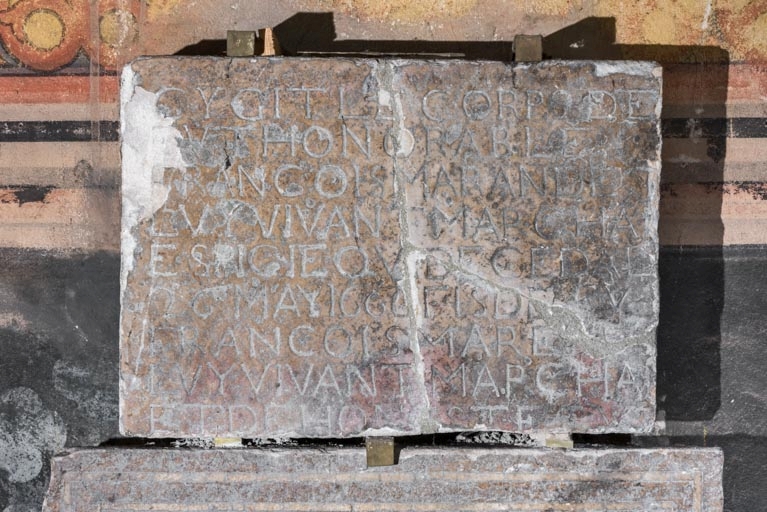 CY GIT LE CORPS DE
FVT HONORABLE
FRANCOIS MARAND
LVY VIVANT MARCHA
ESPICIE QVI DECEDA LE
MAY 1666 ET SDE
FRANCOIS MARE
LVY VIVANT MARCHA
ET DE HON